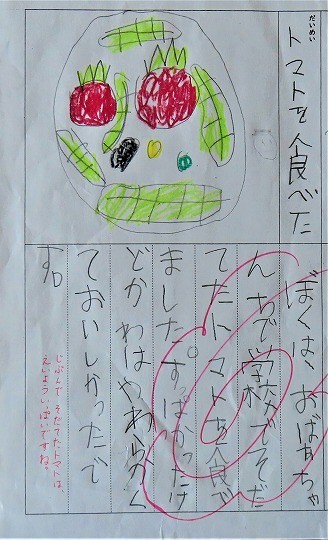 だいめい
トマトを食べた
ぼくは、おばあちゃ
んちで学校でそだ
てたトマトを食べ
ました。すっぱかったけ
どかわはやわらかく
ておいしかったで
す。
じぶんで そだてたトマトは、
えいよういっぱいですね。